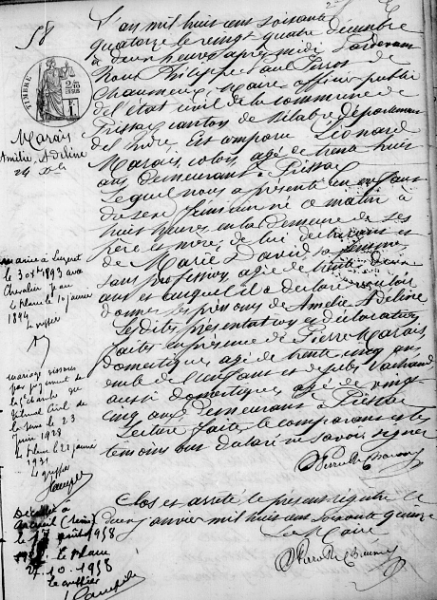 58
L'an mil huit cent soixante
quatorze le vingt quatre décembre
à deux heures après midi Pardevant
Nous Philippe Paul
Chaumeux, Maire officier public
de l'état civil de la commune de
Prissac canton de Bélabre département
de l'Indre, Est comparu Léonard
Marais, colon, agé de trente huit
ans demeurant à Prissac
Lequel nous a présenté un enfant
du sexe féminin né ce matin à
huit heures en la demeure de ses
père et mère, de lui déclarant et
de Marie David, sa femme
sans profession, agée de trente deux
ans et auquel il a déclaré vouloir
donner les prénoms de Amélie Adeline
Lesdites présentation et déclaration
faites en présence de Pierre Marais,
domestique, agé de trente cinq ans
oncle de l'enfant et de
aussi domestique, agé de vingt
cinq ans demeurant à Prissac
Lecture faite le comparant et les
témoins ont déclaré ne savoir signer
Clos et arrêté le présent registre le
deux janvier mil huit cent soixante quinze
Le Maire
TIMBRE
Marais
Amélie, Adeline
24 Xbre
Mariée à
le 3 8bre 1893 avec
Chevalier Jean
le Blanc le 10 janvier
1894
Le greffier
Mariage dissous
par jugement de
la 1e chambre du
tribunal civil de
la Seine le 23
juin 1926
Le Blanc le 22 janvier
1931
Le greffier
Décédée à
le 17 août 1958
Le Blanc
24.10.1958
Le greffier